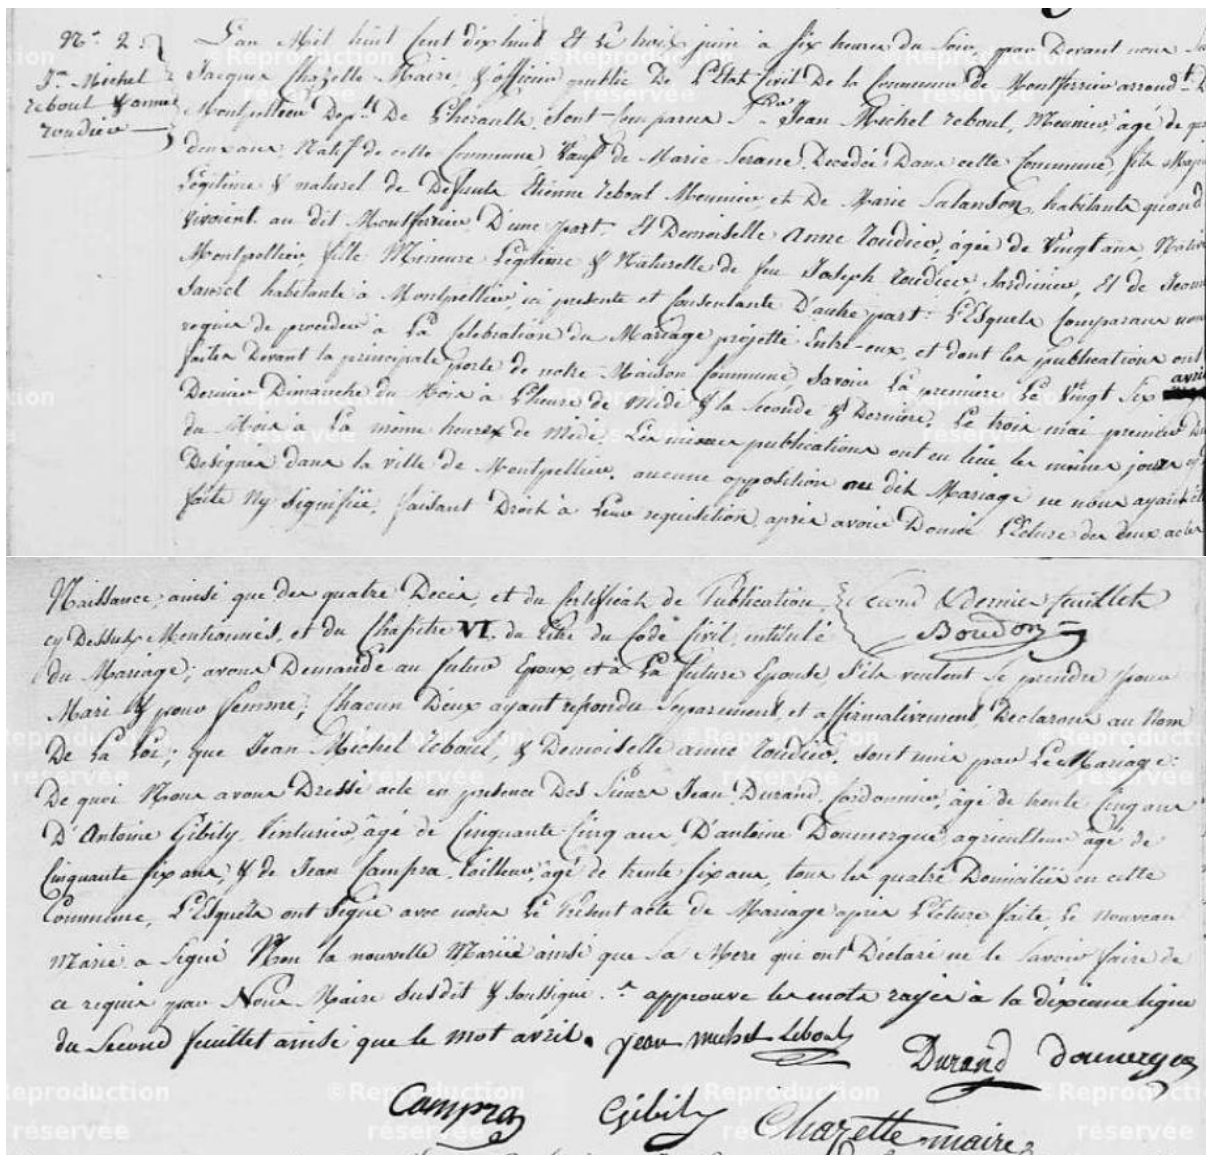 N.° 2.
J.n Michel
reboul & anne
roudier
L'an Mil huit Cent dix huit Et Le trois juin à six heures du Soir, par Devant nous
Jacques Chazelle Maire, & officier public De L'Etat Civil De la Commune De Montferrier arrond.t D
Montpellier Dep.t De L'herault, Sont Comparus S.r Jean Michel reboul, Meunier, âgé de
deux ans, Natif de cette Commune, Veuf de Marie Serane Decedée Dans cette Commune, fils Maj
Légitime & naturel de Defunts Etienne reboul Meunier et De Marie Salanson, habitants quand
vivoient au dit Montferrier, D'une part, Et Demoiselle Anne roudier, âgée de Vingt ans, Native
Montpellier, fille Mineure Légitime & Naturelle de feu Joseph roudier, Jardinier, Et de Jeanne
habitante à Montpellier, ici presente et Consentante D'autre part; LEsquels Comparans nous
requis de proceder à La Celebration du Mariage projetté Entre-eux, et dont les publications ont
faites Devant la principale porte de notre Maison Commune, Savoir La premiere Le Vingt Six avril
Dernier Dimanche du Mois à L'heure de Midi & la Seconde & Derniere, Le trois mai premier
du Mois à La même heure de Midi, Les mêmes publications ont eu lieu les mêmes jours cy
Designés dans la ville de Montpellier, aucune opposition au dit Mariage ne nous ayant été
faite Ny Signifiée, faisant Droit à Leur requisition, après avoir Donné LEcture des deux actes
Naissance, ainsi que des quatre Decès, et du Certificat de Publication, Second & dernier feuillet
cy Dessus Mentionnés, et du Chapitre VI. du titre du Code Civil, intitulé Boudon
du Mariage; avons Demandé au futur Epoux, et à La future Epouse, S'ils veulent Se prendre pour
Mari & pour femme; Chacun D'eux ayant repondu Separement, et affirmativement, Declarons au Nom
De La Loi; que Jean Michel reboul, & Demoiselle anne roudier, sont unis par Le Mariage:
De quoi Nous avons Dressé acte en presence Des Sieurs Jean Durand, Cordonnier, âgé de trente Cinq ans
D'Antoine Gibily, Vinturier, âgé de Cinquante Cinq ans, D'antoine Doumergue, agriculteur âgé de
Cinquante six ans, & de Jean Campra, tailleur, âgé de trente six ans, tous les quatre Domiciliés en cette
Commune, LEsquels ont Signé avec nous Le Présent acte de Mariage après LEcture faite, Le nouveau
marié a Signé Non la nouvelle Mariée ainsi que Sa Mere qui ont Déclaré ne le Savoir faire de
ce requis par Nous Maire Susdit & Soussigné. approuve les mots rayés à la dixieme ligne
du Second feuillet ainsi que le mot avril. jean michel Reboul
Durand doumergue
Campra Gibily Chazelle maire